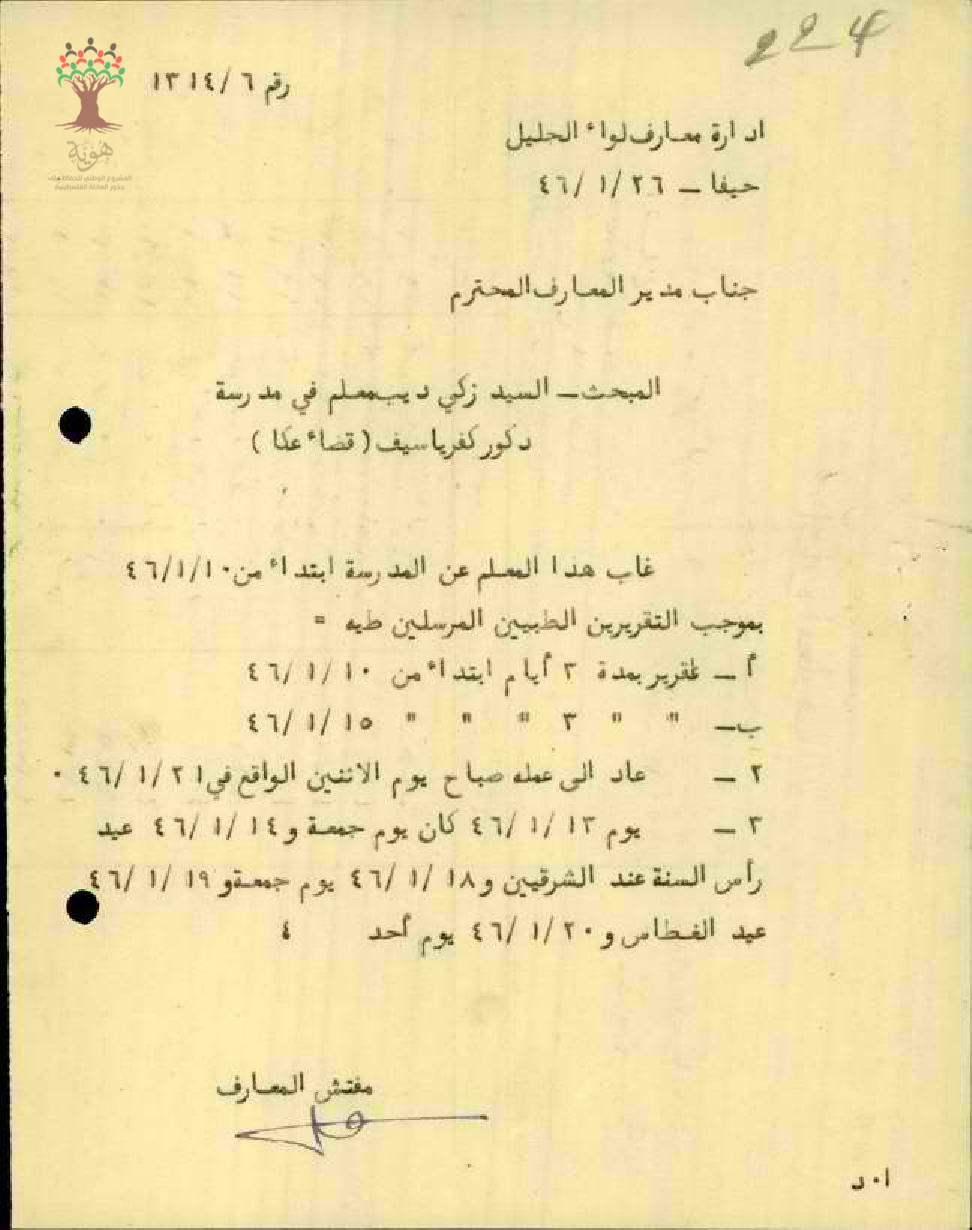 224
هَوِيَّة
المشروع الوطني للحفاظ على
جذور العائلة الفلسطينية
رقم ٦/ ١٣١٤
ادارة معارف لواء الجليل
حيفا – ٢٦/ ١/ ٤٦
جناب مدير المعارف المحترم
المبحث – السيد زكي ديب معلم في مدرسة
ذكور كفرياسيف ( قضاء عكا )
غاب هذا المعلم عن المدرسة ابتداء من ١٠/١/٤٦
بموجب التقريرين الطبيين المرسلين طيه =
أ – تقرير بمدة ٣ أيام ابتداء من ١٠/ ١/ ٤٦
ب – " " ٣ " " " " ١٥/ ١/ ٤٦
٢ – عاد الى عمله صباح يوم الاثنين الواقع في ٢١/ ١/ ٤٦ ٠
٣ – يوم ١٣/ ١/ ٤٦ كان يوم جمعة و ١٤/ ١/ ٤٦ عيد
رأس السنة عند الشرقيين و ١٨/ ١/ ٤٦ يوم جمعة و ١٩/ ١/ ٤٦
عيد الغطاس و ٢٠/ ١/ ٤٦ يوم أحد ٤
مفتش المعارف
ا٠د